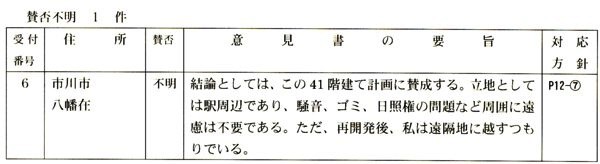 賛否不明 1 件
受付番号 住所 賛否 意見書の要旨 対応方針
6 市川市八幡在 不明 結論としては、この41階建て計画に賛成する。立地として P12-⑦
は駅周辺であり、騒音、ゴミ、日照権の問題など周囲に遠
慮は不要である。ただ、再開発後、私は遠隔地に越すつも
りでいる。